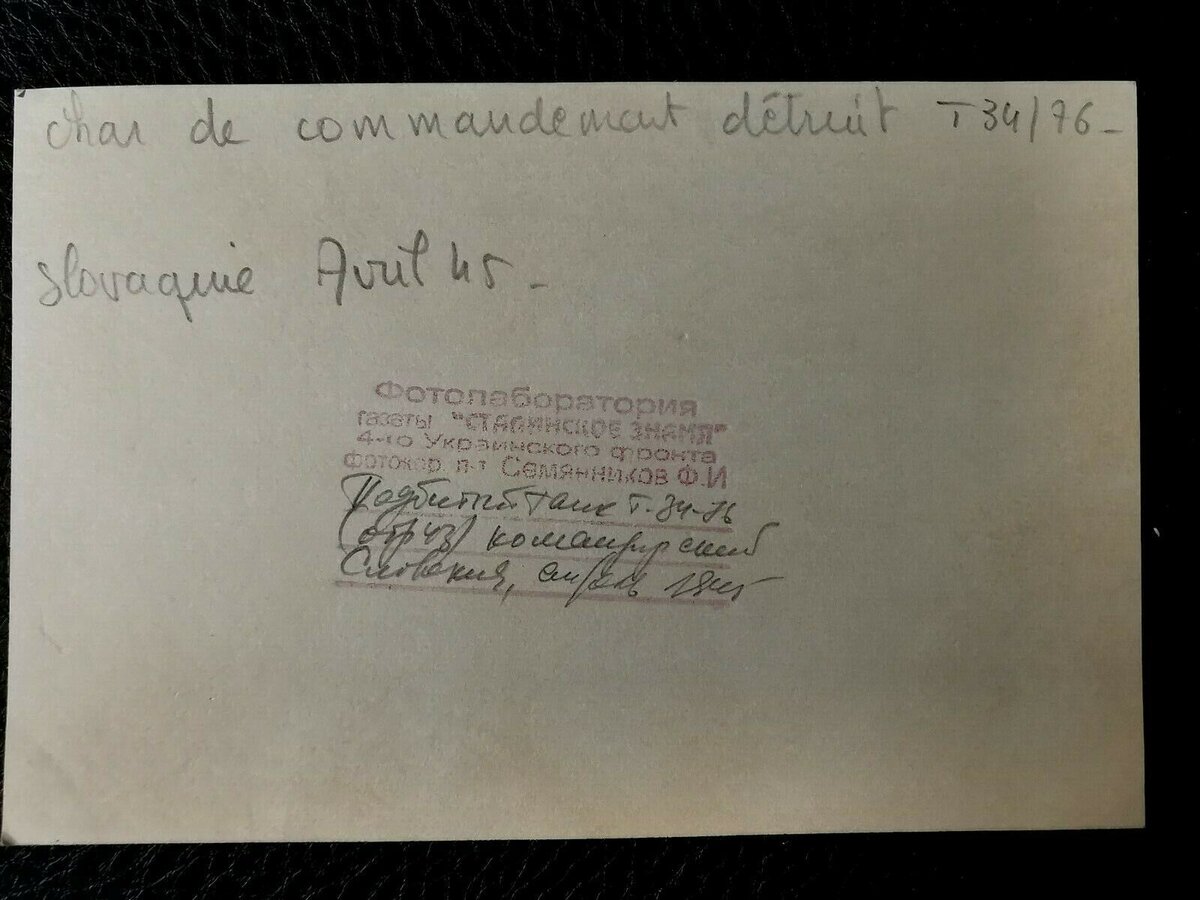 char de commandement détruit T34/76 -
slovaquie Avril 45 -
Фотолаборатория
газеты "СТАЛИНСКОЕ ЗНАМЯ"
4-го Украинского фронта
фотокор. л-т Семянников Ф.И
Подбитый танк Т-34-76
командирский
Словакия, апрель 1945